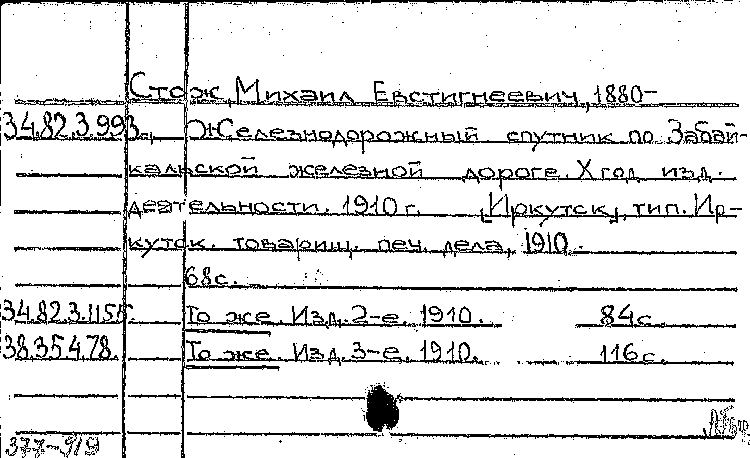 Стож, Михаил Евстигнеевич, 1880-
34.82.3.993. Железнодорожный спутник по Забай-
кальской железной дороге. X год изд.
деятельности. 1910 г. [Иркутск], тип. Ир-
кутск. товарищ. печ. дела, 1910.
68с.
34.82.3.1155. То же. Изд. 2-е. 1910. 84с.
38.35.4.78. То же. Изд. 3-е. 1910. 116с.
377-919